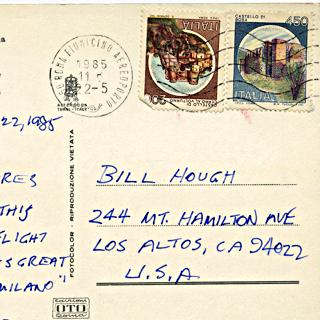 ROMA FIUMICINO AEROPORTO
1985
2-5
ITALIA
CASTELLO DI
450
ITALIA
22, 1985
RES
THIS
FLIGHT
S GREAT
MILANO"
FOTOCOLOR - RIPRODUZIONE VIETATA
BILL HOUGH
244 MT. HAMILTON AVE
LOS ALTOS, CA 94022
U.S.A
OTO